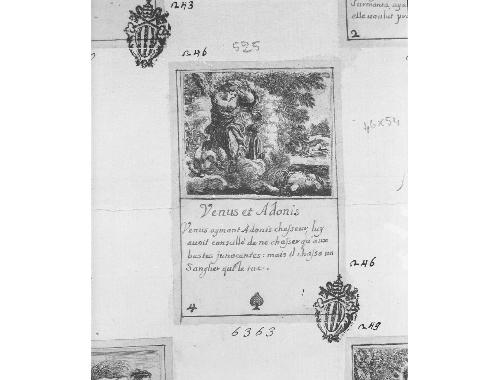 243
246
525
Surmanta aya
elle voulut pr
2
46x54
Venus et Adonis
Venus aymant Adonis chasseur, luy
auoit conseillé de ne chasser qu'aux
bestes jnnocentes: mais il chassa un
Sanglier qui le tua.
4
246
6363
249